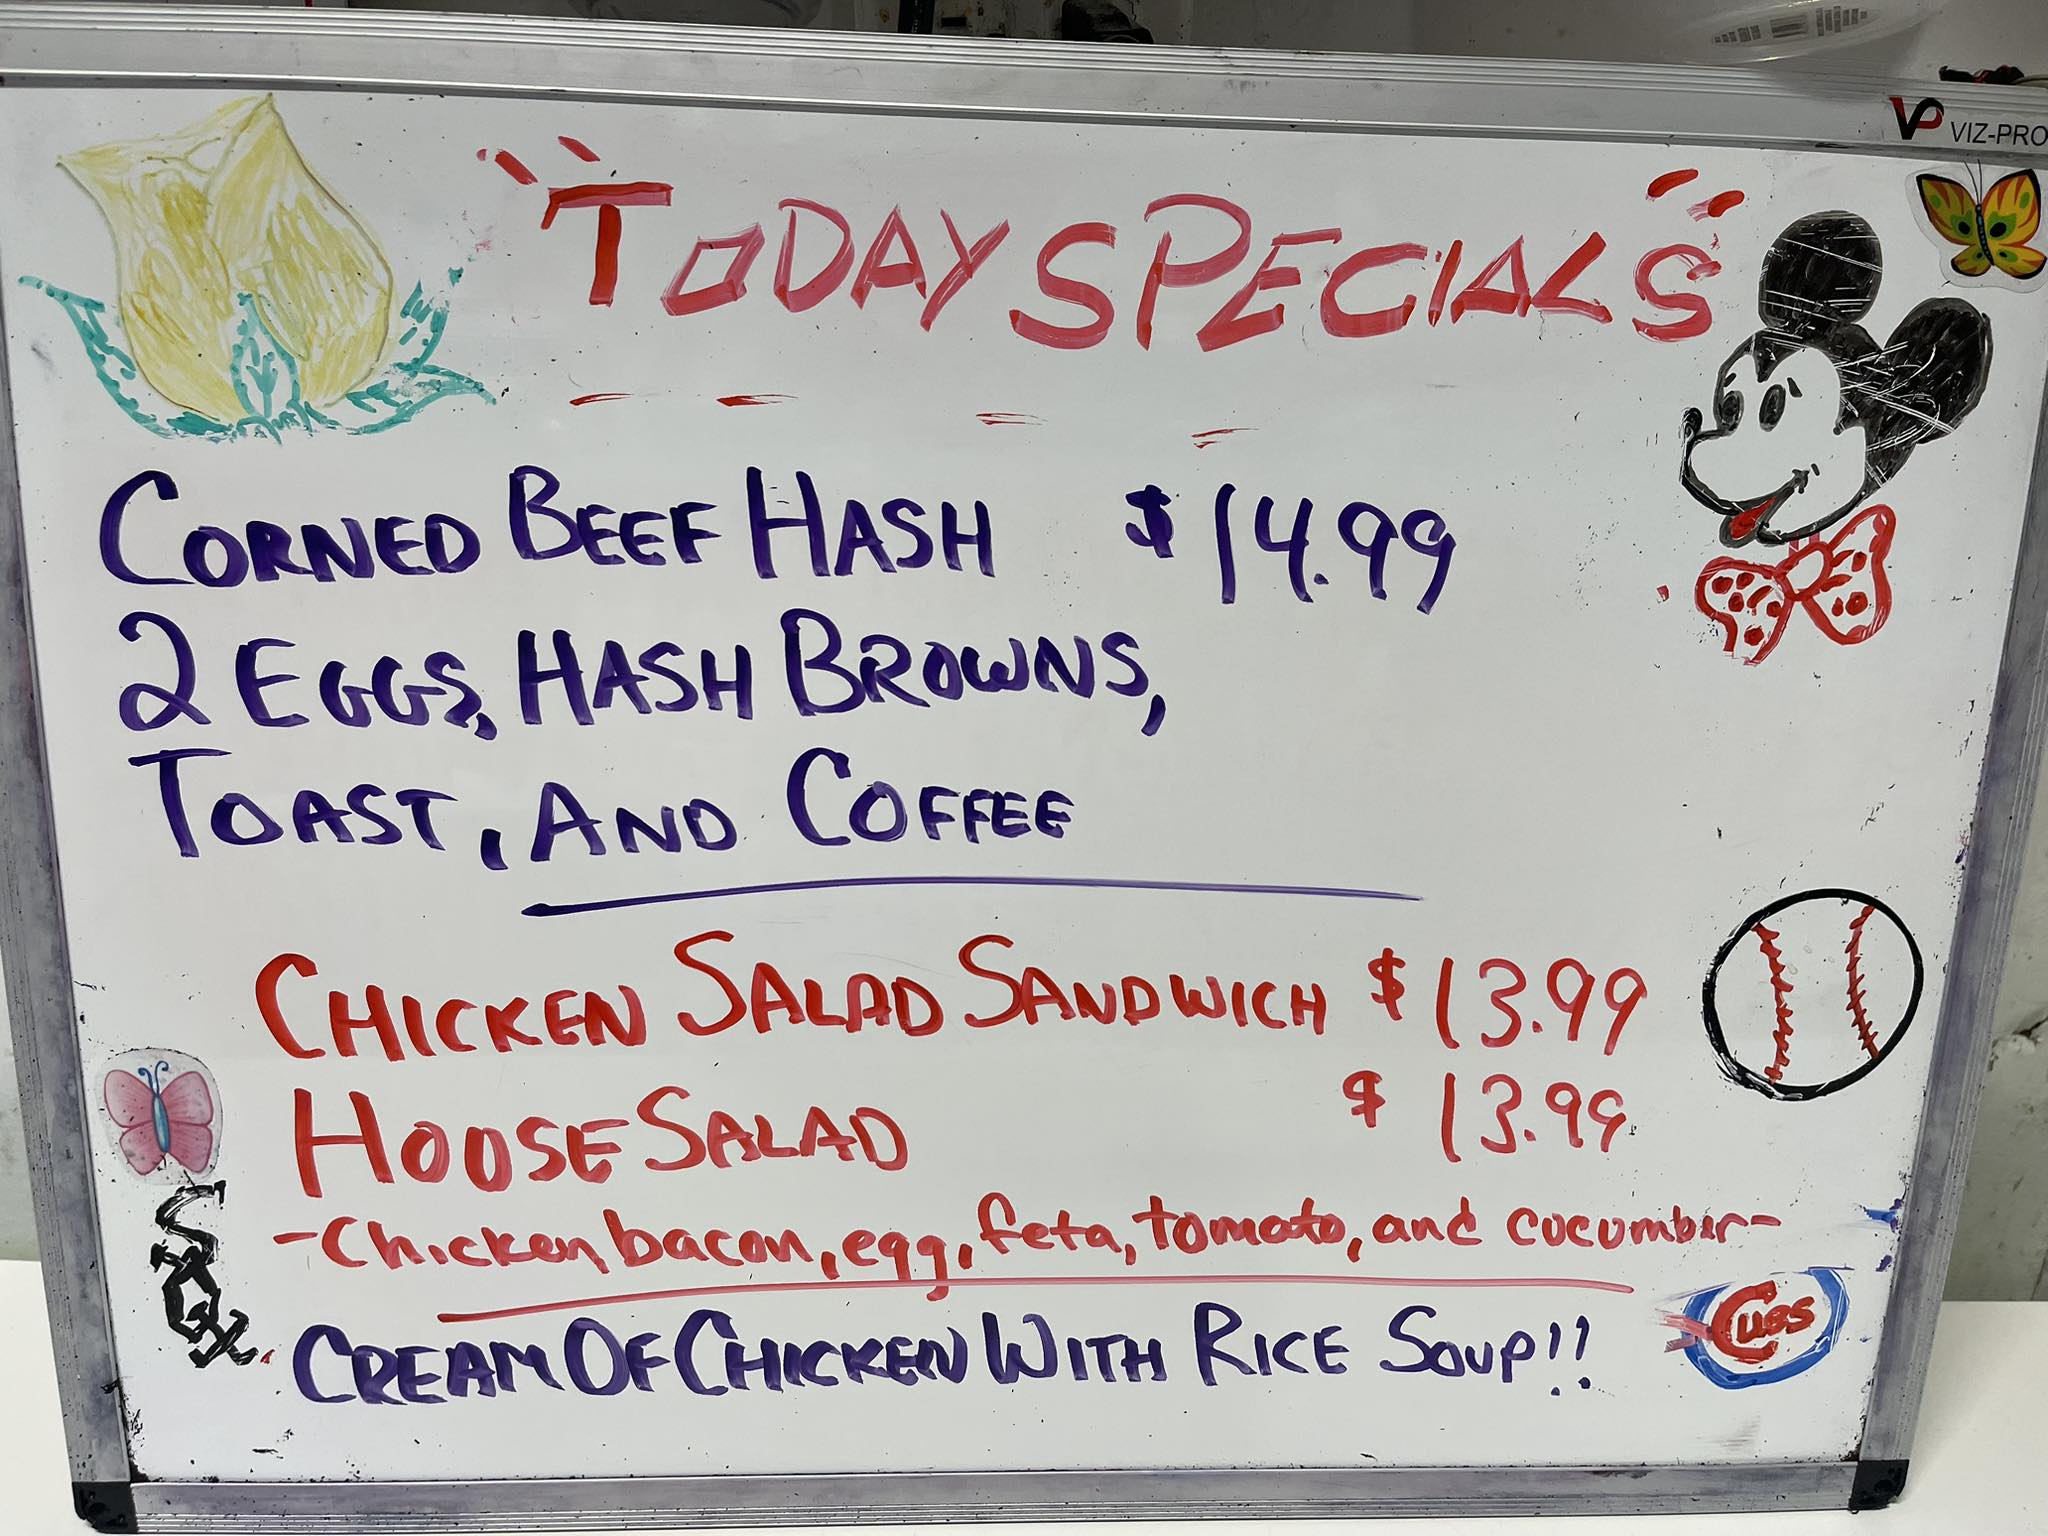 VP VIZ-PRO
"TODAY SPECIALS"
CORNED BEEF HASH $14.99
2 EGGS, HASH BROWNS,
TOAST, AND COFFEE
CHICKEN SALAD SANDWICH $13.99
HOUSE SALAD $13.99
-Chicken, bacon, egg, feta, tomato, and cucumber-
SOX
CREAM OF CHICKEN WITH RICE SOUP!!
CUBS